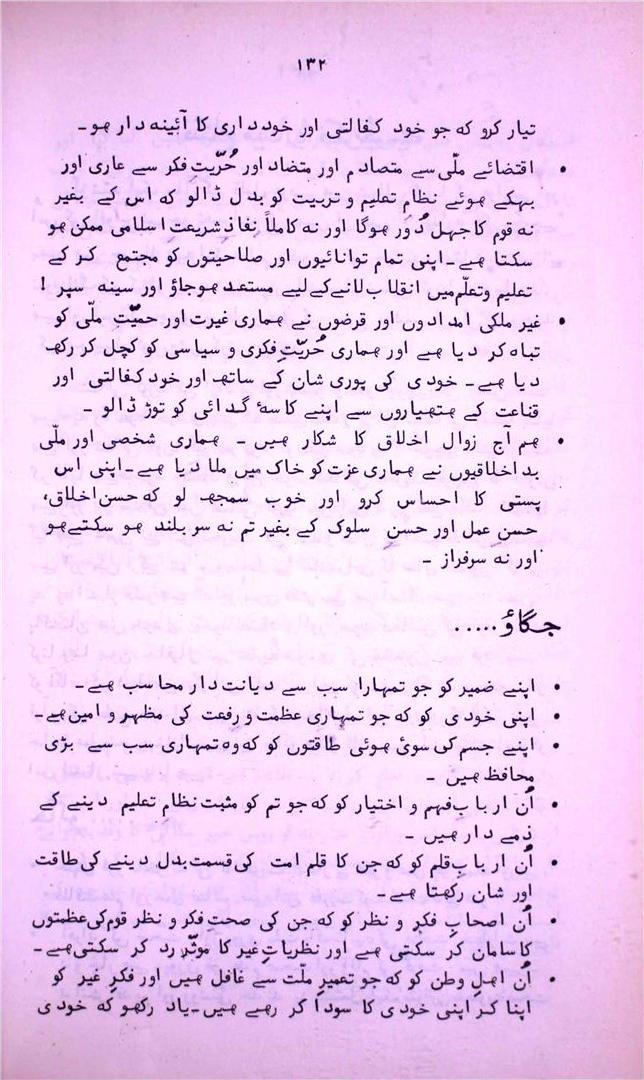 ۱۳۲
تیار کرو کہ جو خود کفالتی اور خود داری کا آئینہ دار ہو۔
• اقتضائے ملّی سے متصادم اور متضاد اور حُرّیتِ فکر سے عاری اور
بہکے ہوئے نظامِ تعلیم و تربیت کو بدل ڈالو کہ اس کے بغیر
نہ قوم کا جہل دُور ہوگا اور نہ کاملاً نفاذِ شریعت اسلامی ممکن ہو
سکتا ہے۔ اپنی تمام توانائیوں اور صلاحیتوں کو مجتمع کر کے
تعلیم وتعلّم میں انقلاب لانے کے لیے مستعد ہوجاؤ اور سینہ سپر !
• غیر ملکی امدادوں اور قرضوں نے ہماری غیرت اور حمیّتِ ملّی کو
تباہ کر دیا ہے اور ہماری حُرّیتِ فکری و سیاسی کو کچل کر رکھ
دیا ہے۔ خودی کی پوری شان کے ساتھ اور خود کفالتی اور
قناعت کے ہتھیاروں سے اپنے کاسۂ گدائی کو توڑ ڈالو ۔
• ہم آج زوال اخلاق کا شکار ہیں ۔ ہماری شخصی اور ملّی
بد اخلاقیوں نے ہماری عزت کو خاک میں ملا دیا ہے۔ اپنی اس
پستی کا احساس کرو اور خوب سمجھ لو کہ حسن اخلاق،
حسنِ عمل اور حسنِ سلوک کے بغیر تم نہ سر بلند ہو سکتے ہو
اور نہ سرفراز ۔
جگاؤ.....
• اپنے ضمیر کو جو تمہارا سب سے دیانت دار محاسب ہے۔
• اپنی خودی کو کہ جو تمہاری عظمت و رِفعت کی مظہر و امین ہے۔
• اپنے جسم کی سوئی ہوئی طاقتوں کو کہ وہ تمہاری سب سے بڑی
محافظ ہیں ۔
• اُن اربابِ فہم و اختیار کو کہ جو تم کو مثبت نظامِ تعلیم دینے کے
ذمے دار ہیں ۔
• اُن اربابِ قلم کو کہ جن کا قلم امت کی قسمت بدل دینے کی طاقت
اور شان رکھتا ہے۔
• اُن اصحابِ فکر و نظر کو کہ جن کی صحت فکر و نظر قوم کی عظمتوں
کا سامان کر سکتی ہے اور نظریاتِ غیر کا موثّر رد کر سکتی ہے۔
• اُن اہلِ وطن کو کہ جو تعمیرِ ملّت سے غافل ہیں اور فکرِ غیر کو
اپنا کر اپنی خودی کا سودا کر رہے ہیں۔ یاد رکھو کہ خودی